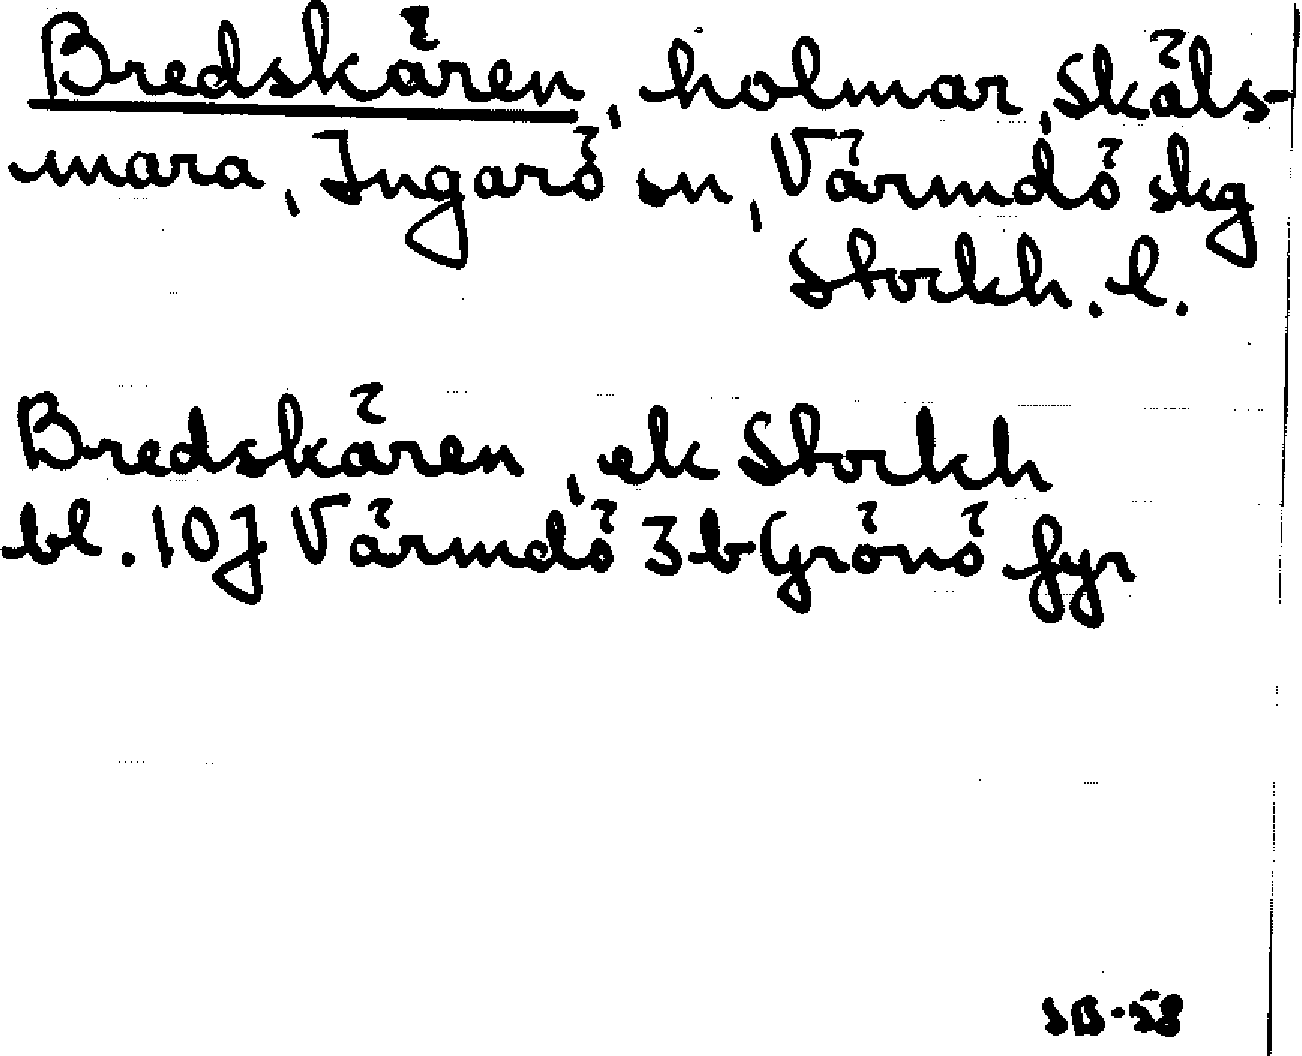 Bredskären, holmar, Skäls-
mara, Ingarö sn, Värmdö skg
Stockh. l.
Bredskären, ek Stockh
bl. 10J Värmdö 3b Grönö fyr
SB-58